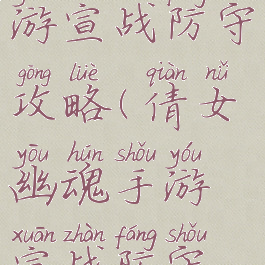 游宣战防守
gōng lüè qiàn nǚ
攻略(倩女
yōu hún shǒu yóu
幽魂手游
xuān zhàn fáng shǒu
宣战防守